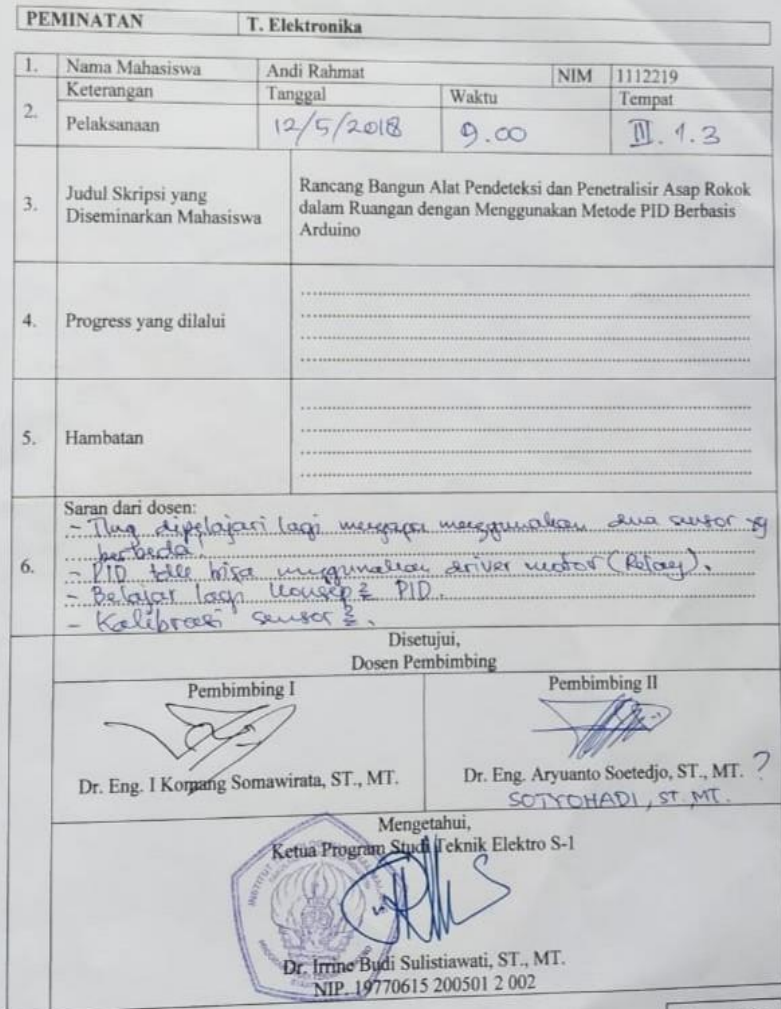 PEMINATAN T. Elektronika
1. Nama Mahasiswa Andi Rahmat NIM 1112219
2. Keterangan Tanggal Waktu Tempat
Pelaksanaan 12/5/2018 9.00 III. 1.3
3. Judul Skripsi yang Diseminarkan Mahasiswa
Rancang Bangun Alat Pendeteksi dan Penetralisir Asap Rokok
dalam Ruangan dengan Menggunakan Metode PID Berbasis
Arduino
4. Progress yang dilalui
5. Hambatan
6. Saran dari dosen:
- dipelajari lagi mengapa menggunakan dua sensor yg
berbeda.
- PID tdk bisa menggunakan driver motor (Relay).
- Belajar lagi konsep2 PID.
- Kalibrasi sensor2.
Disetujui,
Dosen Pembimbing
Pembimbing I Pembimbing II
Dr. Eng. I Komang Somawirata, ST., MT. Dr. Eng. Aryuanto Soetedjo, ST., MT. ?
SOTYOHADI, ST. MT.
Mengetahui,
Ketua Program Studi Teknik Elektro S-1
INSTITUT
Dr. Irrine Budi Sulistiawati, ST., MT.
NIP. 19770615 200501 2 002